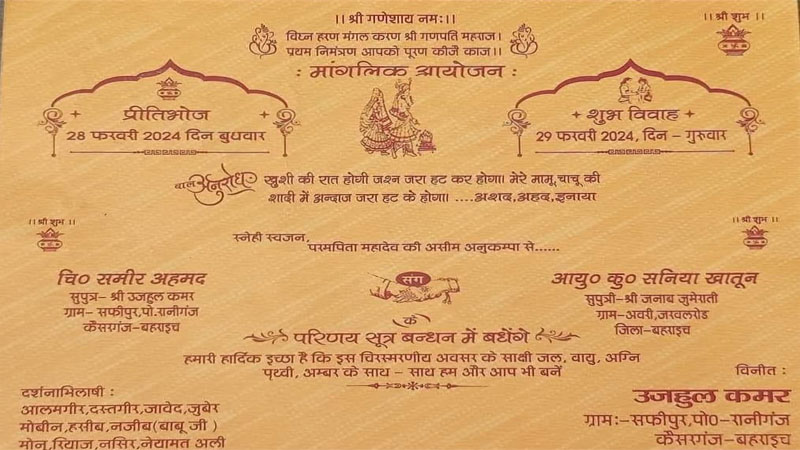 ।। श्री गणेशाय नमः।।
।। श्री शुभ ।।
विघ्न हरण मंगल करण श्री गणपति महराज।
प्रथम निमंत्रण आपको पूरण कीजै काज।।
: मांगलिक आयोजन :
प्रीतिभोज
28 फरवरी 2024 दिन बुधवार
शुभ विवाह
29 फरवरी 2024, दिन – गुरुवार
बाल अनुरोधः खुशी की रात होगी जश्न जरा हट कर होगा। मेरे मामू,चाचू की
शादी में अन्दाज जरा हट के होगा। ....अशद,अहद,इनाया
।। श्री शुभ ।।
।। श्री शुभ ।।
स्नेही स्वजन,
परमपिता महादेव की असीम अनुकम्पा से......
चि० समीर अहमद
सुपुत्र- श्री उजहुल कमर
ग्राम- सफीपुर,पो.रानीगंज
कैसरगंज-बहराइच
संग
आयु० कु० सनिया खातून
सुपुत्री-श्री जनाब जुमेराती
ग्राम-अवरी,जरवलरोड
जिला-बहराइच
के
परिणय सूत्र बन्धन में बधेंगे
हमारी हार्दिक इच्छा है कि इस चिरस्मरणीय अवसर के साक्षी जल, वायु, अग्नि
पृथ्वी, अम्बर के साथ – साथ हम और आप भी बनें
दर्शनाभिलाषी :
आलमगीर,दस्तगीर,जावेद,जुबेर
मोबीन,हसीब,नजीब(बाबू जी )
मोनू,रियाज,नसिर,नेयामत अली
विनीत :
उजहुल कमर
ग्रामः-सफीपुर,पो0-रानीगंज
कैसरगंज-बहराइच